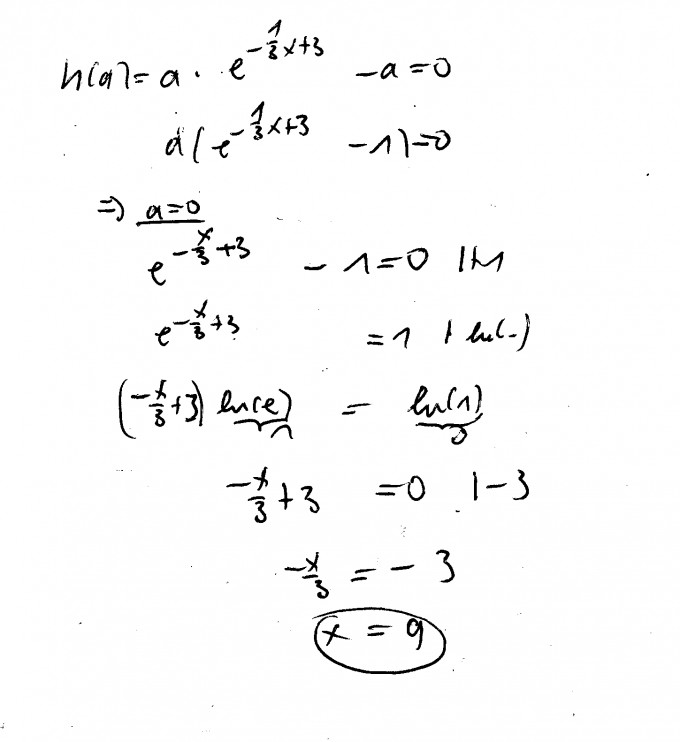 h(a) = a · e^{-\frac{1}{3}x+3} - a = 0
a(e^{-\frac{1}{3}x+3} - 1) = 0
⇒) a = 0
e^{-\frac{x}{3}+3} - 1 = 0 |+1
e^{-\frac{x}{3}+3} = 1 | ln(-)
(-\frac{x}{3}+3) ln(e) = ln(1)
1 0
-\frac{x}{3}+3 = 0 |-3
-\frac{x}{3} = -3
x = 9